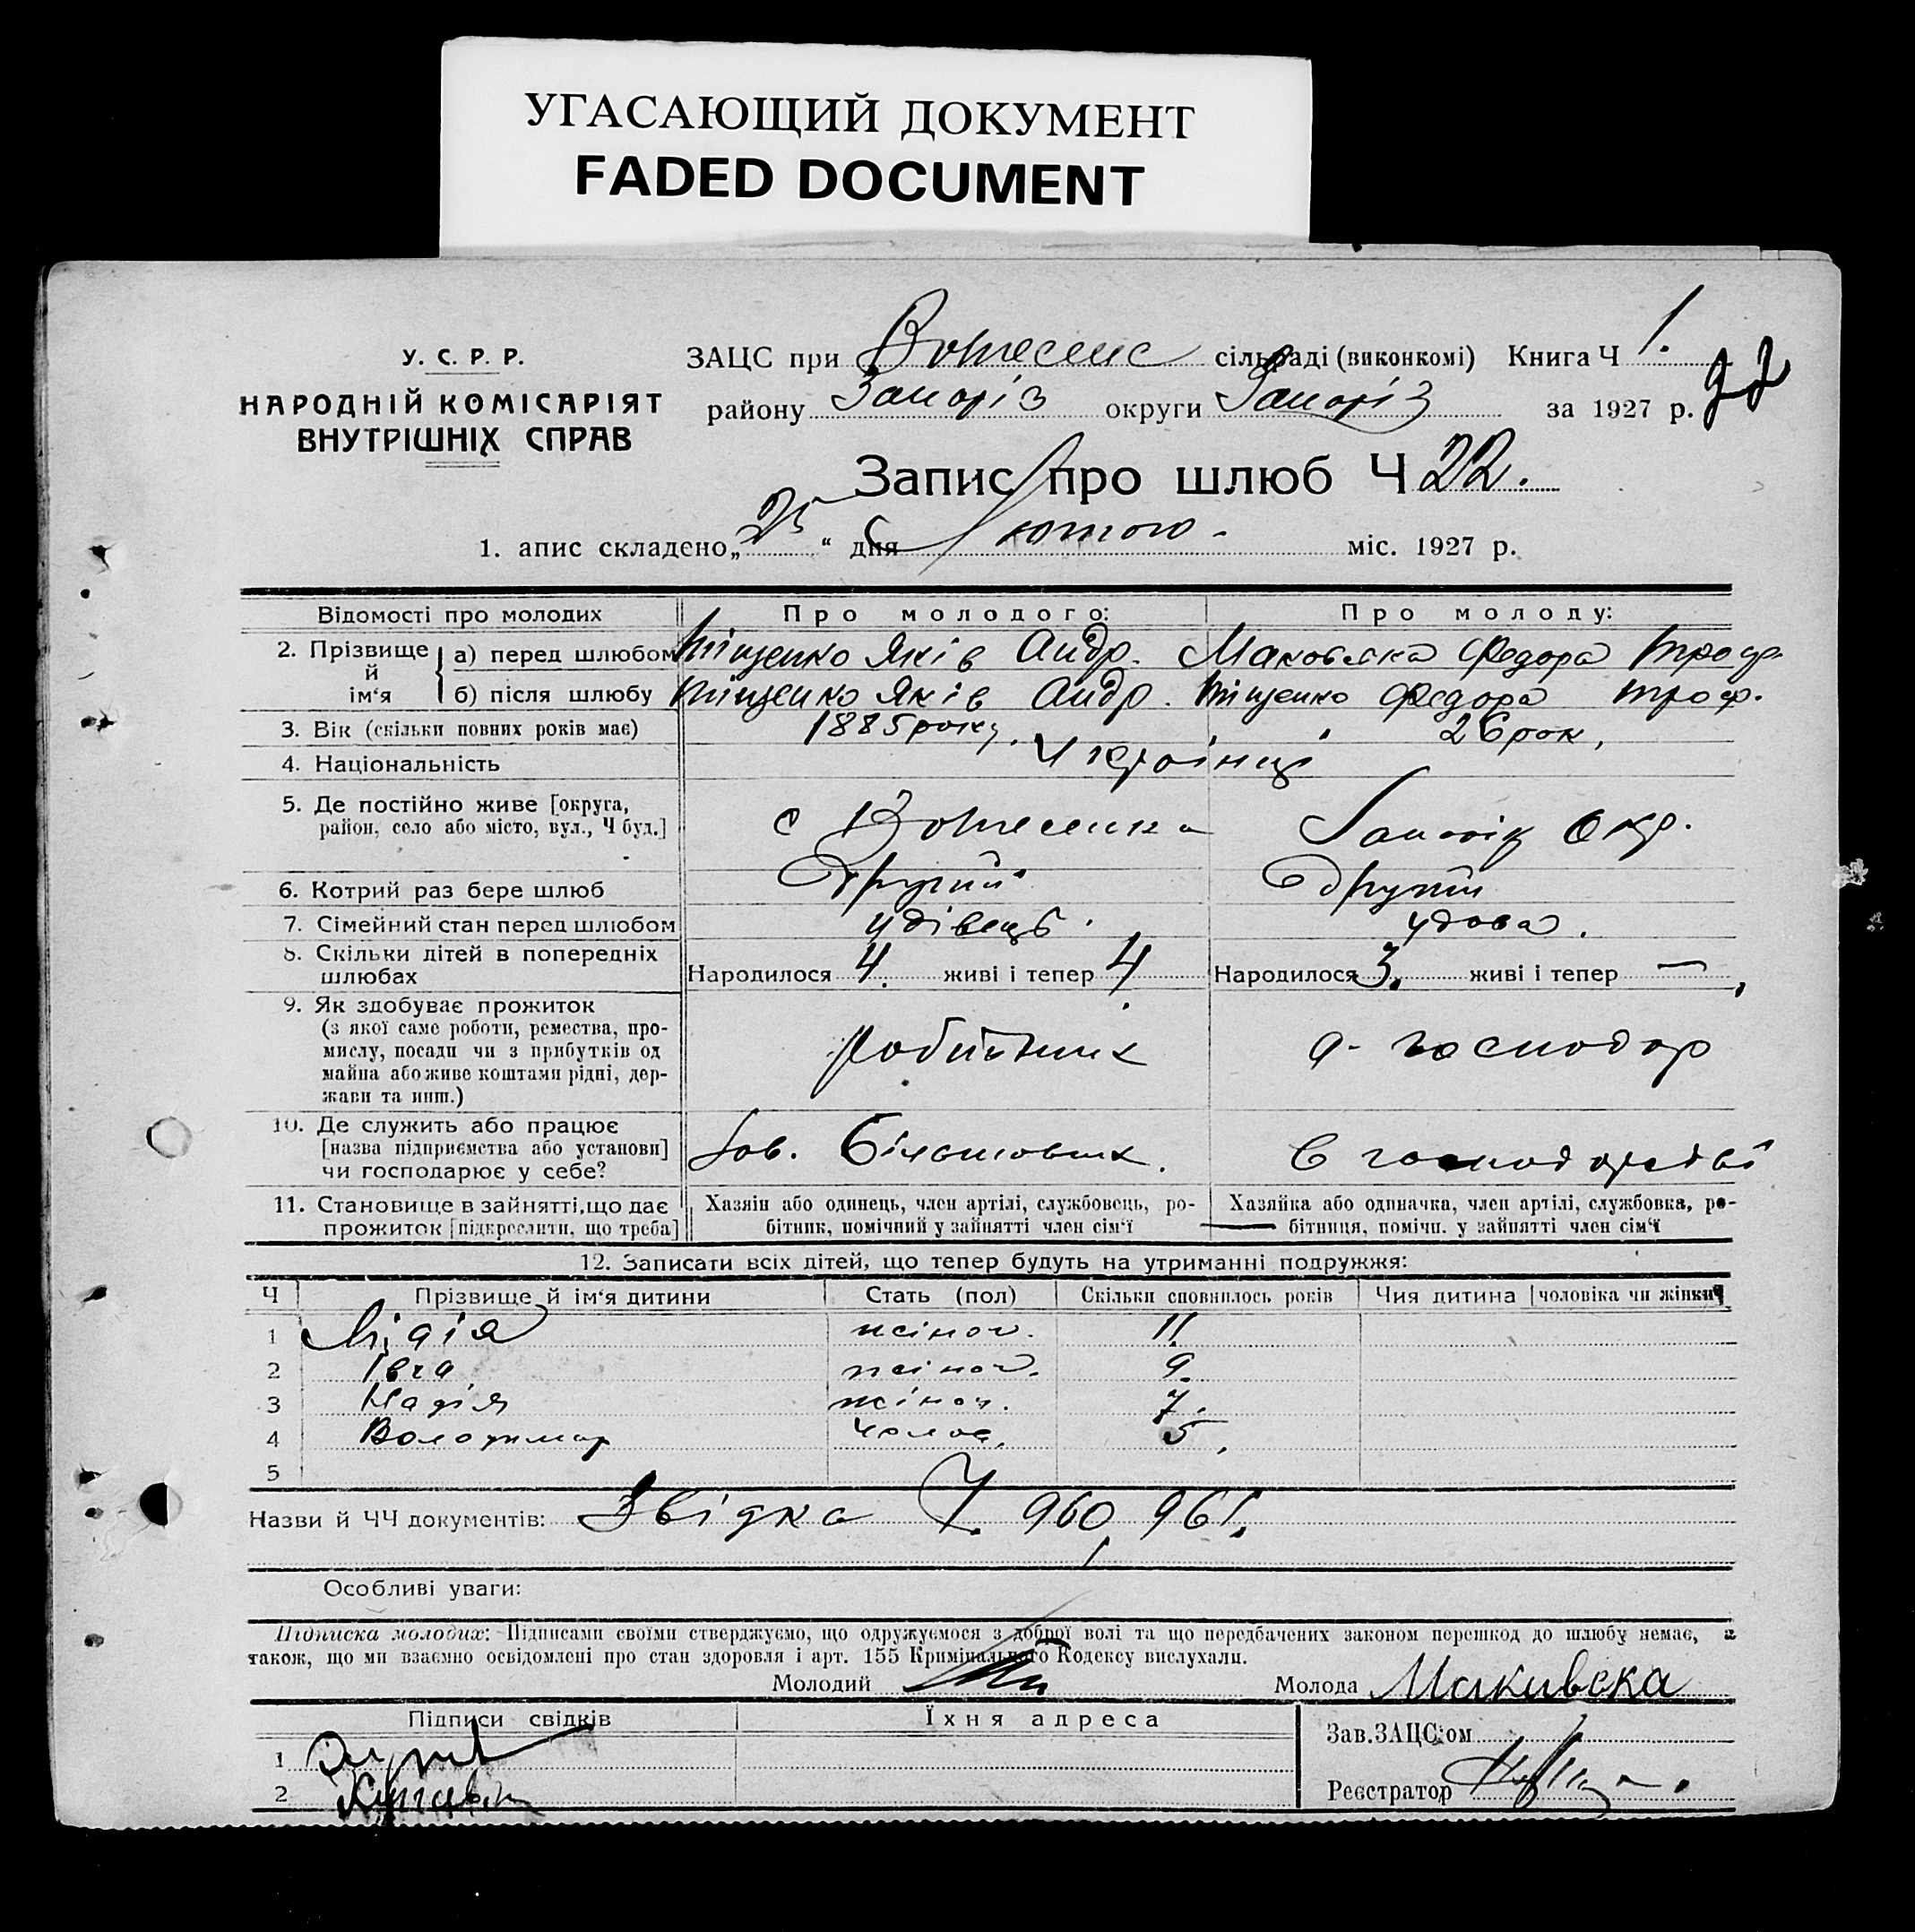 УГАСАЮЩИЙ ДОКУМЕНТ
FADED DOCUMENT
У. С. Р. Р.
НАРОДНІЙ КОМІСАРІЯТ
ВНУТРІШНІХ СПРАВ
ЗАЦС при Вознесенс сільраді (виконкомі) Книга Ч 1.
району Запоріз округи Запоріз за 1927 р.
Запис про шлюб Ч 22.
1. апис складено „25“ дня Лютого - міс. 1927 р.
Відомості про молодих Про молодого: Про молоду:
2. Прізвище й ім‘я а) перед шлюбом Тіщенко Яків Андр. Маковська Федора Троф.
б) після шлюбу Тіщенко Яків Андр. Тіщенко Федора Троф.
3. Вік (скільки повних років має) 1885 року. 26 рок,
4. Національність Українці
5. Де постійно живе [округа,
район, село або місто, вул., Ч буд.] с Вознесенка Запоріз Окр.
6. Котрий раз бере шлюб Другий Другий
7. Сімейний стан перед шлюбом удівець. удова.
8. Скільки дітей в попередніх
шлюбах Народилося 4. живі і тепер 4 Народилося 3. живі і тепер —
9. Як здобуває прожиток
(з якої саме роботи, ремества, про-
мислу, посади чи з прибутків од
майна або живе коштами рідні, дер-
жави та инш.) робітник господар
10. Де служить або працює
[назва підприємства або установи]
чи господарює у себе? в господарстві
11. Становище в зайнятті, що дає
прожиток [підкреслити, що треба]
Хазяін або одинець, член артілі, службовець, ро-
бітник, помічний у зайнятті член сім‘ї
Хазяйка або одиначка, член артілі, службовка, ро-
бітниця, помічн. у зайнятті член сім‘ї
12. Записати всіх дітей, що тепер будуть на утриманні подружжя:
Ч Прізвище й ім‘я дитини Стать (пол) Скільки сповнилось років Чия дитина чоловіка чи жінки
1 Лідія жіноч. 11.
2 Івга жіноч. 9.
3 Надія жіноч. 7.
4 Володимир чолов. 5,
5
Назви й ЧЧ документів: Звідка Ч. 960, 961.
Особливі уваги:
Підписка молодих: Підписами своїми стверджуємо, що одружуємося з доброї волі та що передбачених законом перешкод до шлюбу немає, а
також, що ми взаємно освідомлені про стан здоровля і арт. 155 Кримінального Кодексу вислухали.
Молодий Молода Макивска
Підписи свідків Їхня адреса
Зав. ЗАЦС‘ом
1
2
Реєстратор